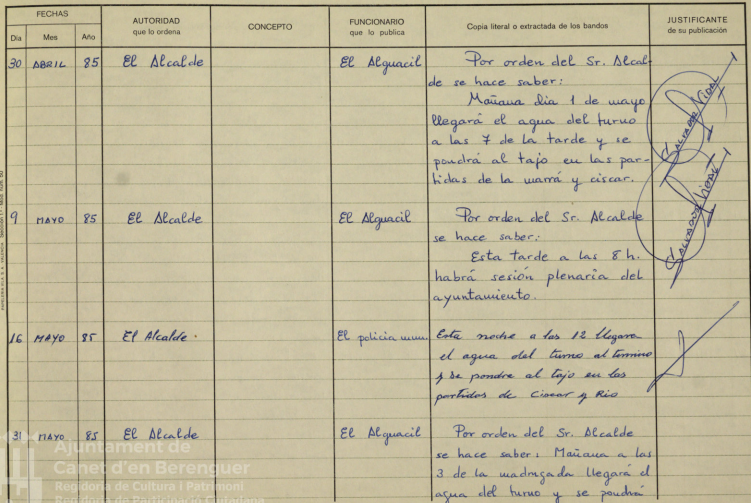 FECHAS
Día Mes Año
AUTORIDAD
que lo ordena
CONCEPTO
FUNCIONARIO
que lo publica
Copia literal o extractada de los bandos
JUSTIFICANTE
de su publicación
30 ABRIL 85 El Alcalde El Alguacil Por orden del Sr. Alcal-
de se hace saber:
Mañana dia 1 de mayo
llegará el agua del turno
a las 7 de la tarde y se
pondrá al tajo en las par-
tidas de la marrá y ciscar.
SALVADOR VIDAL
9 MAYO 85 El Alcalde El Alguacil Por orden del Sr. Alcalde
se hace saber:
Esta tarde a las 8 h.
habrá sesión plenaria del
ayuntamiento.
SALVADOR VIDAL
16 MAYO 85 El Alcalde. El policia mun. Esta noche a las 12 llegara
el agua del turno al termino
y se pondra al tajo en las
partidas de Ciscar y Rio
31 MAYO 85 El Alcalde El Alguacil Por orden del Sr. Alcalde
se hace saber: Mañana a las
3 de la madrugada llegará el
agua del turno y se pondrá
Ajuntament de
Canet d'en Berenguer
Regidoria de Cultura i Patrimoni
Regidoria de Participació Ciutadana